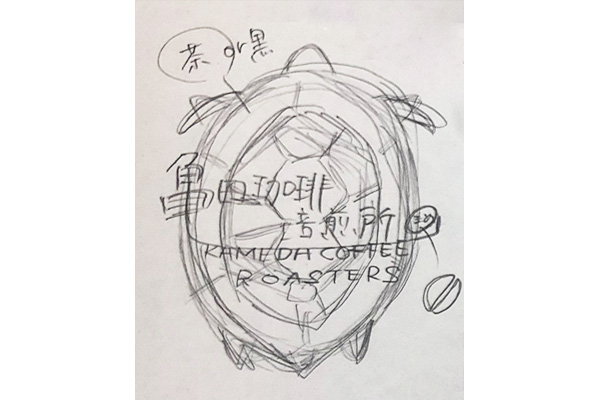 茶 or 黒
亀田珈琲
焙煎所 まめ
KAMEDA COFFEE
ROASTERS